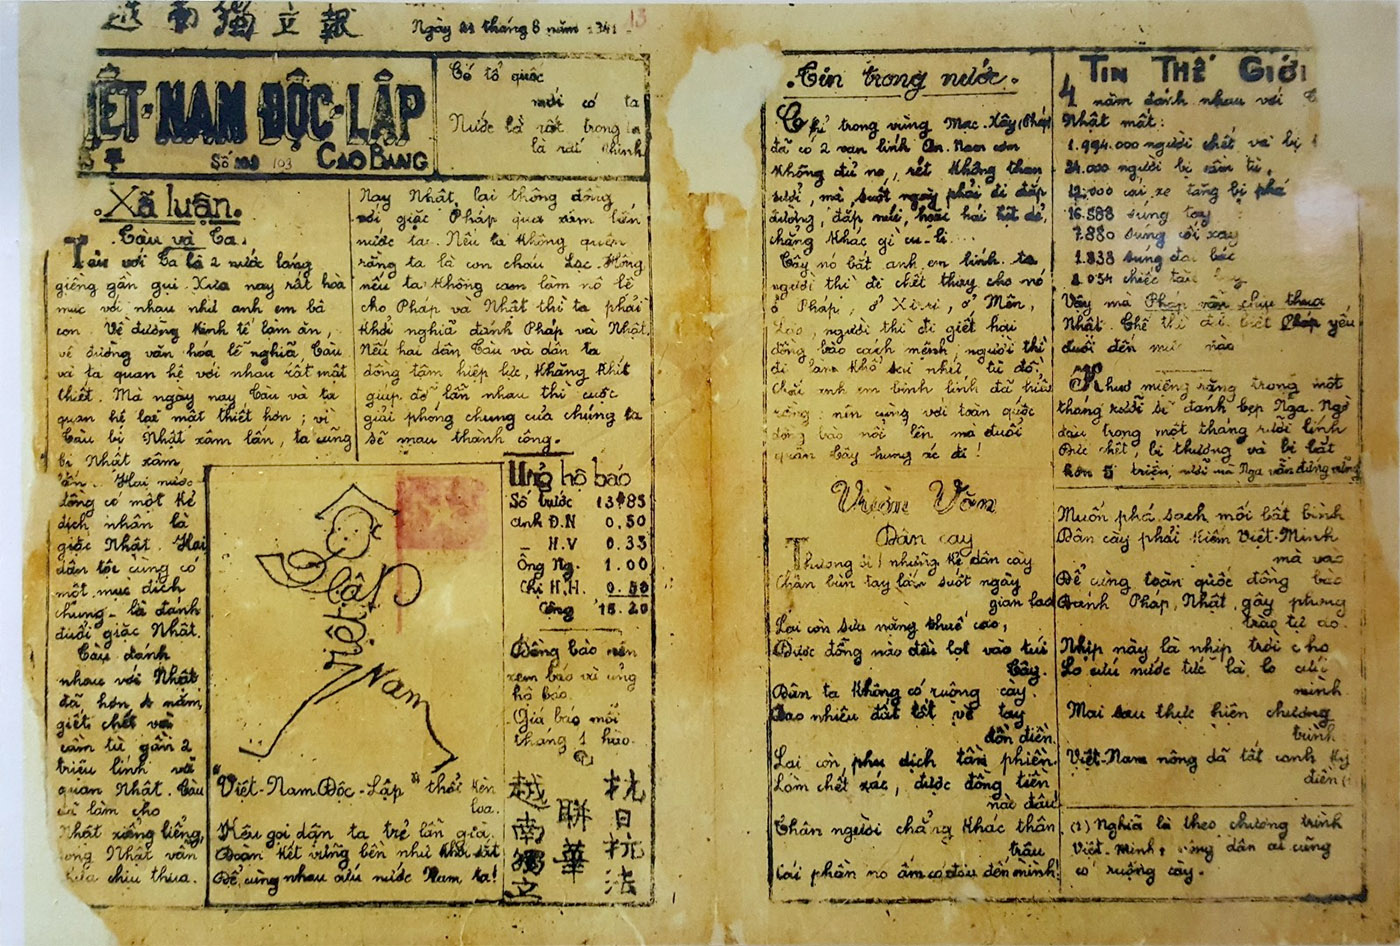 越南獨立報
Ngày 21 tháng 8 năm 1941
VIỆT-NAM ĐỘC-LẬP
Số 103
CAO BANG
Có tổ quốc
mới có ta
Nước là rất trọng
là rất chính
Xã luận.
Tàu và Ta.
Tàu với Ta là 2 nước láng
giềng gần gụi. Xưa nay rất hòa
mục với nhau như anh em bà
con. Về đường kinh tế làm ăn,
về đường văn hóa lễ nghĩa, Tàu
và ta quan hệ với nhau rất mật
thiết. Mà ngày nay Tàu và ta
quan hệ lại mật thiết hơn; vì
Tàu bị Nhật xâm lấn, ta cũng
bị Nhật xâm
lấn. Hai nước
đồng có một kẻ
địch nhân là
giặc Nhật. Hai
dân tộc cùng có
một mục đích
chung là đánh
đuổi giặc Nhật.
Tàu đánh
nhau với Nhật
đã hơn 4 năm,
giết chết và
cầm tù gần 2
triệu lính và
quan Nhật. Tàu
đã làm cho
Nhật xiểng liểng,
song Nhật vẫn
chưa chịu thua.
Nay Nhật lại thông đồng
với giặc Pháp qua xâm lấn
nước ta. Nếu ta không quên
rằng ta là con cháu Lạc-Hồng
nếu ta không cam làm nô lệ
cho Pháp và Nhật thì ta phải
khởi nghĩa đánh Pháp và Nhật.
Nếu hai dân Tàu và dân ta
đồng tâm hiệp lực, khăng khít
giúp đỡ lẫn nhau thì cuộc
giải phóng chung của chúng ta
sẽ mau thành công.
Việt Nam Độc Lập
"Việt-Nam Độc-Lập" thổi kèn
loa.
Kêu gọi dân ta trẻ lẫn già.
Đoàn kết vững bền như khối sắt
Để cùng nhau cứu nước Nam ta!
Ủng hộ báo
Số trước 13$85
Anh Đ.N 0.50
_ H.V 0.35
Ông Ng. 1.00
Chị H.H. 0.50
Cộng 15.20
Đồng bào nên
xem báo và ủng
hộ báo.
Giá báo mỗi
tháng 1 hào.
越南獨立
聯華
抗日抗法
Tin trong nước.
Chỉ trong vùng Mạc-Xây (Pháp)
đã có 2 vạn lính An-Nam cơm
không đủ no, rét không than
sưởi, mà suốt ngày phải đi đắp
đường, đắp núi, hoặc hái hột dẻ,
chẳng khác gì cu-li...
Tây nó bắt anh em lính ta
người thì đi chết thay cho nó
ở Pháp, ở Xi-ri, ở Mên,
Lào, người thì đi giết hại
đồng bào cách mệnh, người thì
đi làm khổ sai như tù đồ.
Thôi anh em binh lính đã hiểu
rằng nên cùng với toàn quốc
đồng bào nổi lên mà đuổi
quân Tây hung ác đi!
Vườn Văn
Dân cày
Thương ôi! những kẻ dân cày
Chân bùn tay lấm suốt ngày
gian lao
Lại còn sưu nặng thuế cao,
Được đồng nào đều lọt vào túi
Tây.
Dân ta không có ruộng cày.
Bao nhiêu đất tốt về tay
đồn điền.
Lại còn phu dịch tần phiền.
Làm chết xác, được đồng tiền
nào đâu!
Thân người chẳng khác thân
trâu
Cái phần no ấm có đâu đến mình!
TIN THẾ GIỚI
4 năm đánh nhau với
Nhật mất:
1.994.000 người chết và bị
24.000 người bị cầm tù.
12,000 cái xe tăng bị phá
16.588 súng tay
7.880 súng cối xay
1.838 súng đại bác
2.054 chiếc tàu bay
Vậy mà Pháp vẫn chịu thua
Nhật. Thế thì đủ biết Pháp yếu
đuối đến mức nào
khoe miệng rằng trong một
tháng rưỡi sẽ đánh bẹp Nga. Ngờ
đâu trong một tháng rưỡi lính
Đức chết, bị thương và bị bắt
hơn triệu, mà Nga vẫn đứng vững
Muốn phá sạch mối bất bình
Dân cày phải kiếm Việt-Minh
mà vào
Để cùng toàn quốc đồng bào
Đánh Pháp, Nhật, gây phong
trào tự do.
Nhịp này là nhịp trời cho
Lo cứu nước tức là lo cứu
mình
Mai sau thực hiện chương
trình
Việt-Nam nông dã tất canh kỳ
điền (1)
(1) Nghĩa là theo chương trình
Việt-Minh, nông dân ai cũng
có ruộng cày.